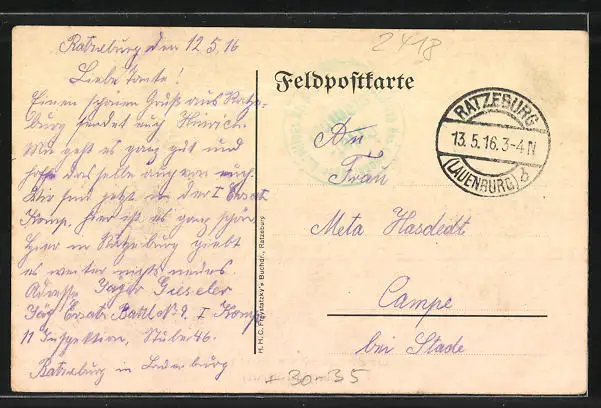 Ratzeburg den 12.5.16
Liebe Tante!
Einen schönen Gruß aus Ratze-
burg sendet euch Hinrich.
Mir geht es ganz gut und
hoffe das selbe auch von euch.
Wir sind jetzt in der I Ersat
Komp. hier ist es ganz schön
hier in Ratzeburg giebt
es weiter nichts neues.
Adresse Jäger Gieseler
Jäg Ersatz Batl No 9. I Komp.
11 Inspektion, Stube 46.
Ratzeburg in Lauenburg
2418
Feldpostkarte
RATZEBURG
13.5.16.3-4N
(LAUENBURG) b
An
Frau
Meta Hasdedt
Campe
bei Stade
H. H. C. Freystatzky's Buchdr., Ratzeburg
30-35